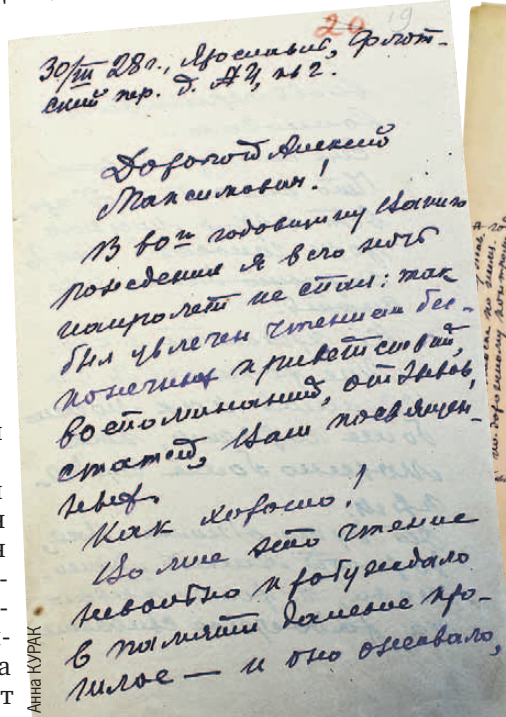 20 19
30/III 28 г., Ярославль, Флот-
ский пер. д. № 2.
Дорогой Алексей
Максимович!
В 60ю годовщину Вашего
рождения я всю ночь
напролет не спал: так
был увлечен чтением бес-
конечных приветствий,
воспоминаний, отзывов,
статей, Вам посвящен-
ных.
Как хорошо!
Во мне это чтение
невольно пробуждало
в памяти далекое про-
шлое — и оно оживало,
Анна КУРАК
я
я
я
-
-
-
а
т